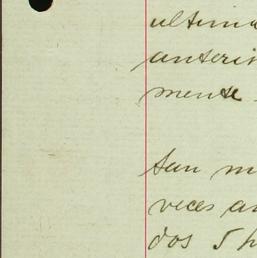 ultima
anteri
mente
tan m
veces an
dos 5 h